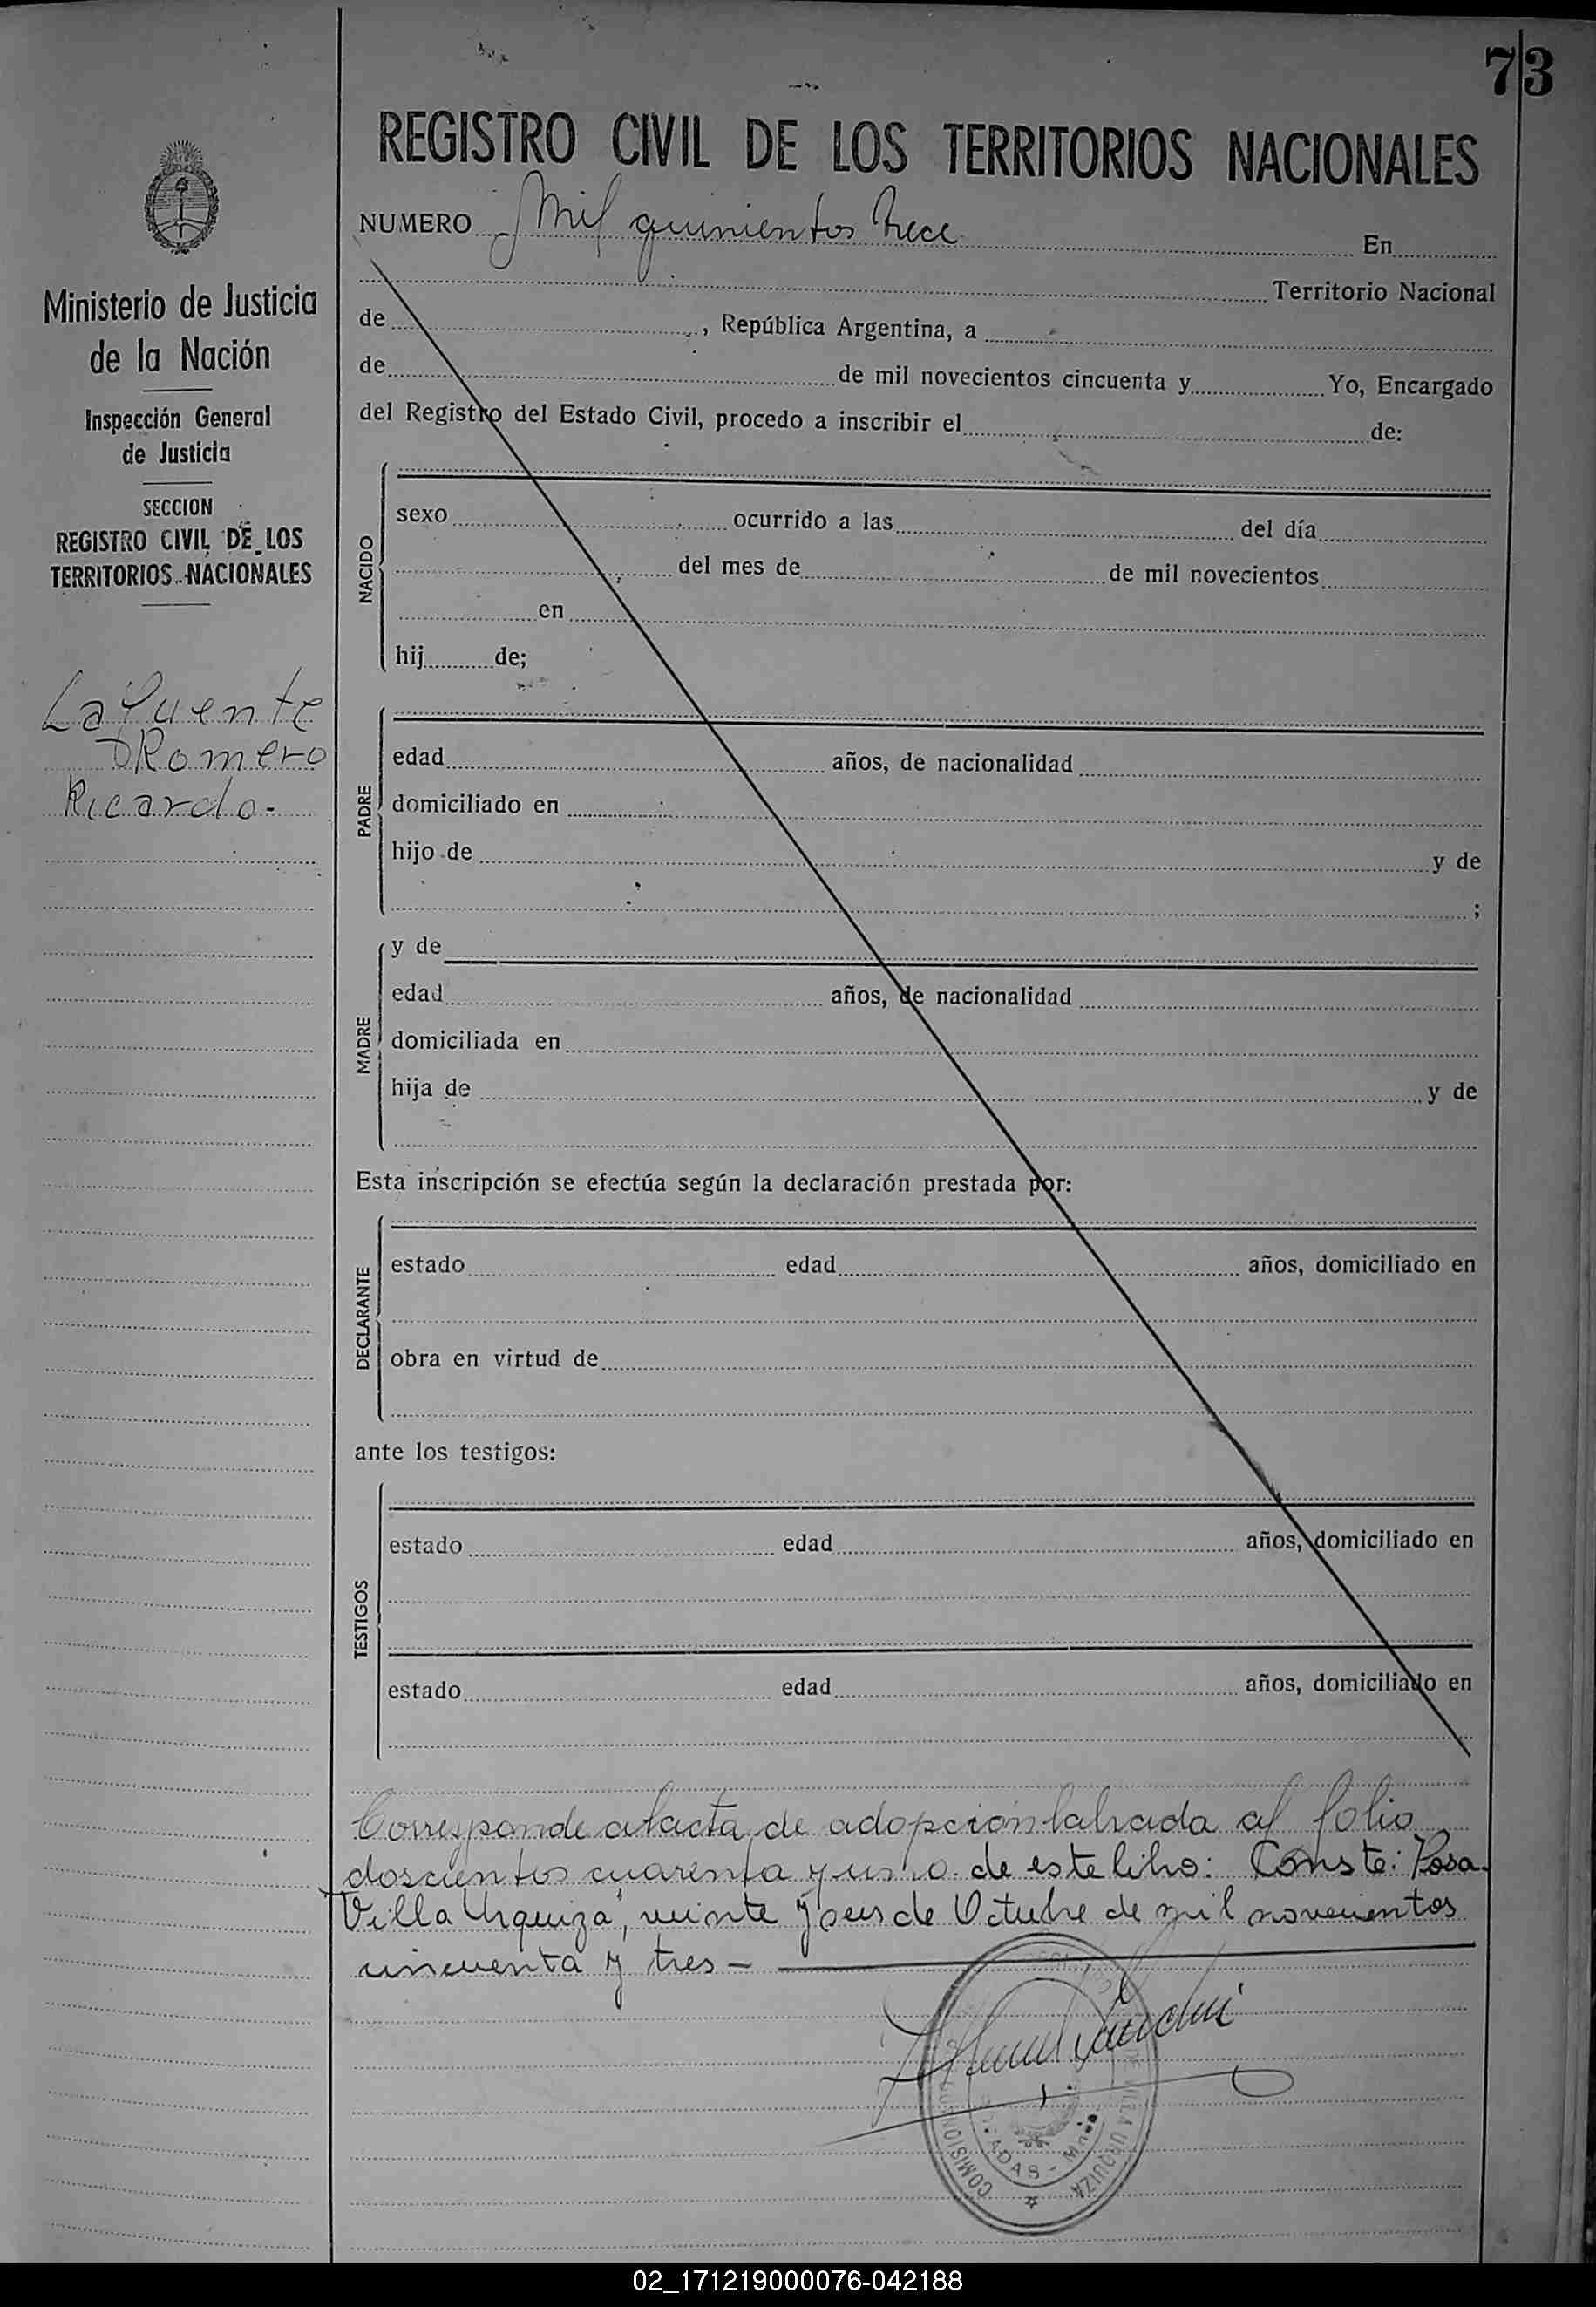 73
REGISTRO CIVIL DE LOS TERRITORIOS NACIONALES
NUMERO Mil quinientos trece En
Territorio Nacional
de , República Argentina, a
de de mil novecientos cincuenta y Yo, Encargado
del Registro del Estado Civil, procedo a inscribir el de:
Ministerio de Justicia
de la Nación
Inspección General
de Justicia
SECCION
REGISTRO CIVIL DE LOS
TERRITORIOS NACIONALES
Lafuente
Romero
Ricardo.-
NACIDO
sexo ocurrido a las del día
del mes de de mil novecientos
en
hij de;
PADRE
edad años, de nacionalidad
domiciliado en
hijo de y de
;
MADRE
y de
edad años, de nacionalidad
domiciliada en
hija de y de
Esta inscripción se efectúa según la declaración prestada por:
DECLARANTE
estado edad años, domiciliado en
obra en virtud de
ante los testigos:
TESTIGOS
estado edad años, domiciliado en
estado edad años, domiciliado en
Corresponde al acta de adopción labrada al folio
doscientos cuarenta y uno de este libro: Conste: Posa-
Villa Urquiza", veinte y seis de Octubre de mil novecientos
cincuenta y tres -
COMISION VILLA URQUIZA
02_171219000076-042188